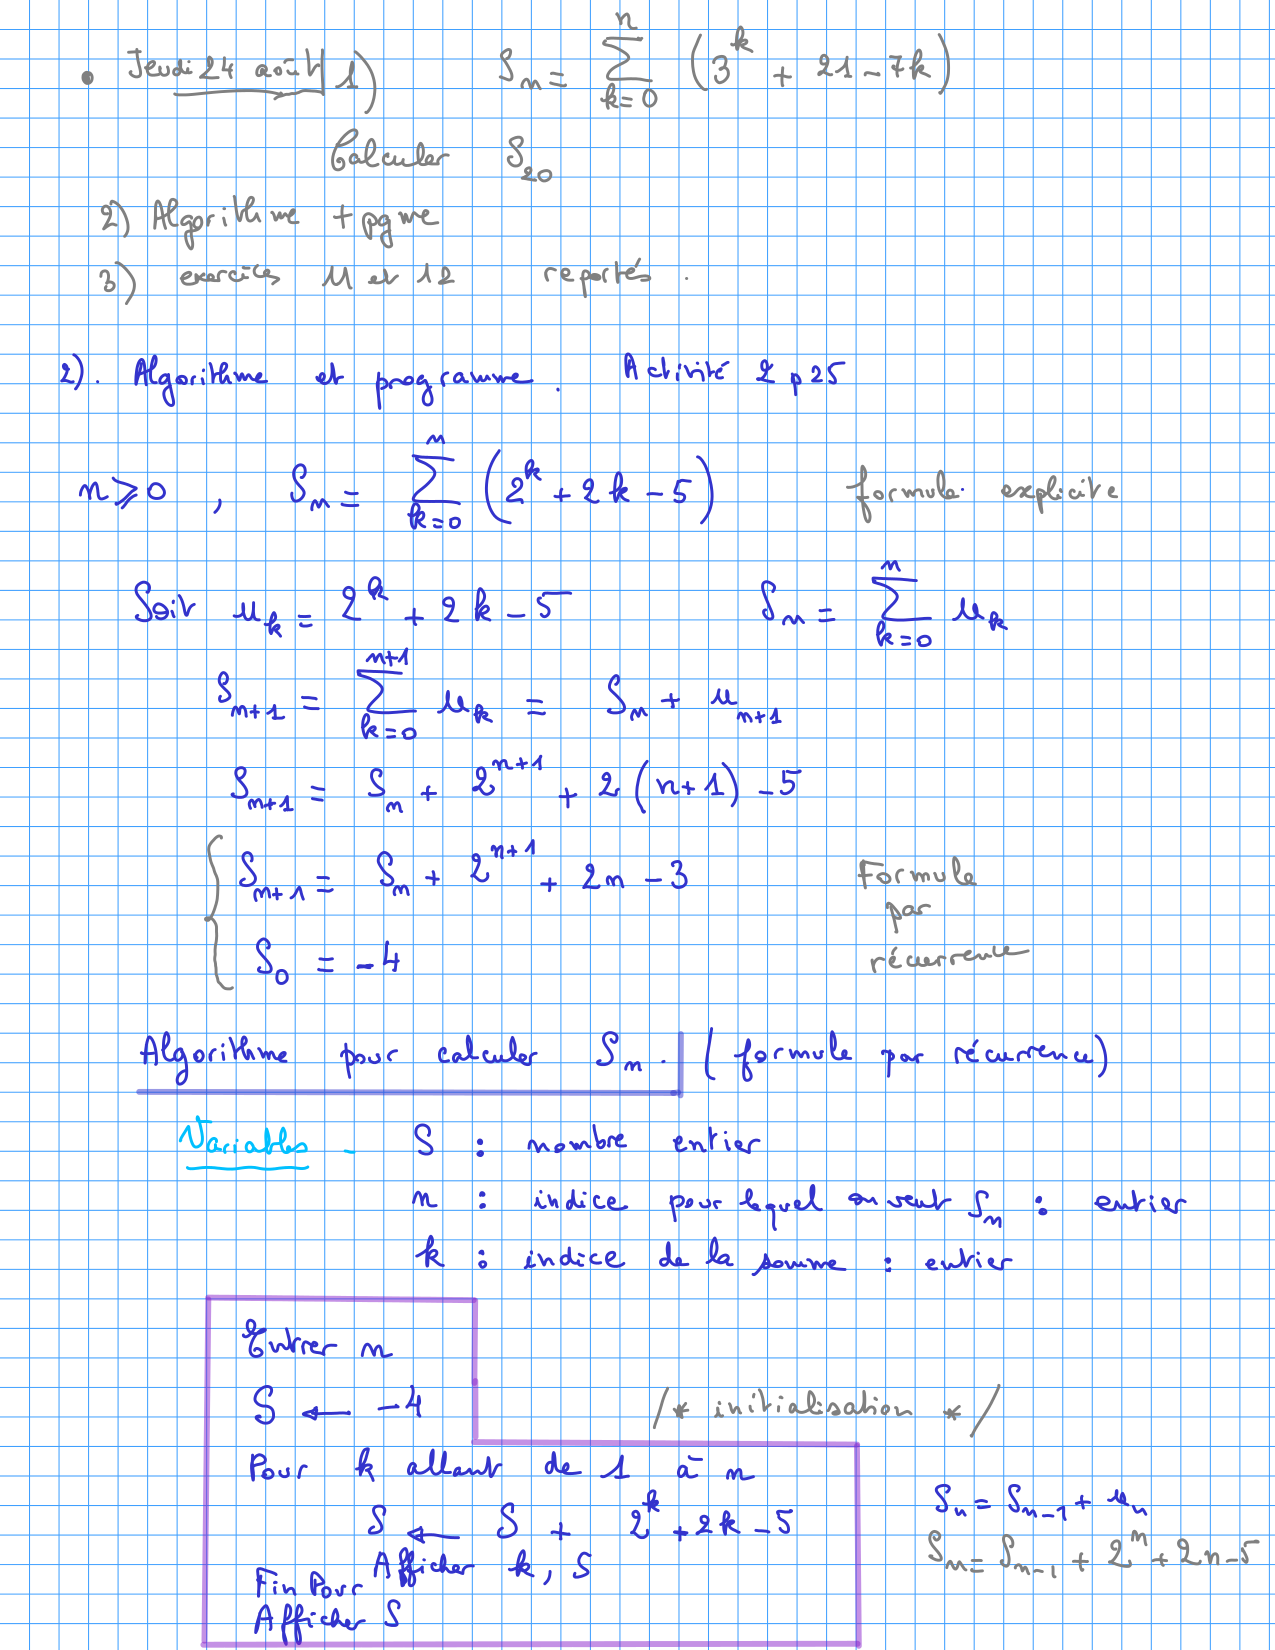 • Jeudi 24 août 1) Sₙ = ∑_{k=0}^{n} (3^k + 21 - 7k)
Calculer S₂₀
2) Algorithme + pgme
3) exercices 11 et 12 reportés.
2). Algorithme et programme. Activité 2 p 25
n ⩾ 0 , Sₙ = ∑_{k=0}^{n} (2^k + 2k - 5) formule explicite
Soit u_k = 2^k + 2k - 5 Sₙ = ∑_{k=0}^{n} u_k
S_{n+1} = ∑_{k=0}^{n+1} u_k = Sₙ + u_{n+1}
S_{n+1} = Sₙ + 2^{n+1} + 2(n+1) - 5
{ S_{n+1} = Sₙ + 2^{n+1} + 2n - 3 Formule
par
S₀ = -4 récurrence
Algorithme pour calculer Sₙ. (formule par récurrence)
Variables - S : nombre entier
n : indice pour lequel on veut Sₙ : entier
k : indice de la somme : entier
Entrer n
S ← -4 /* initialisation */
Pour k allant de 1 à n
Sₙ = Sₙ₋₁ + uₙ
S ← S + 2^k + 2k - 5
Sₙ = Sₙ₋₁ + 2^n + 2n - 5
Afficher k, S
Fin Pour
Afficher S